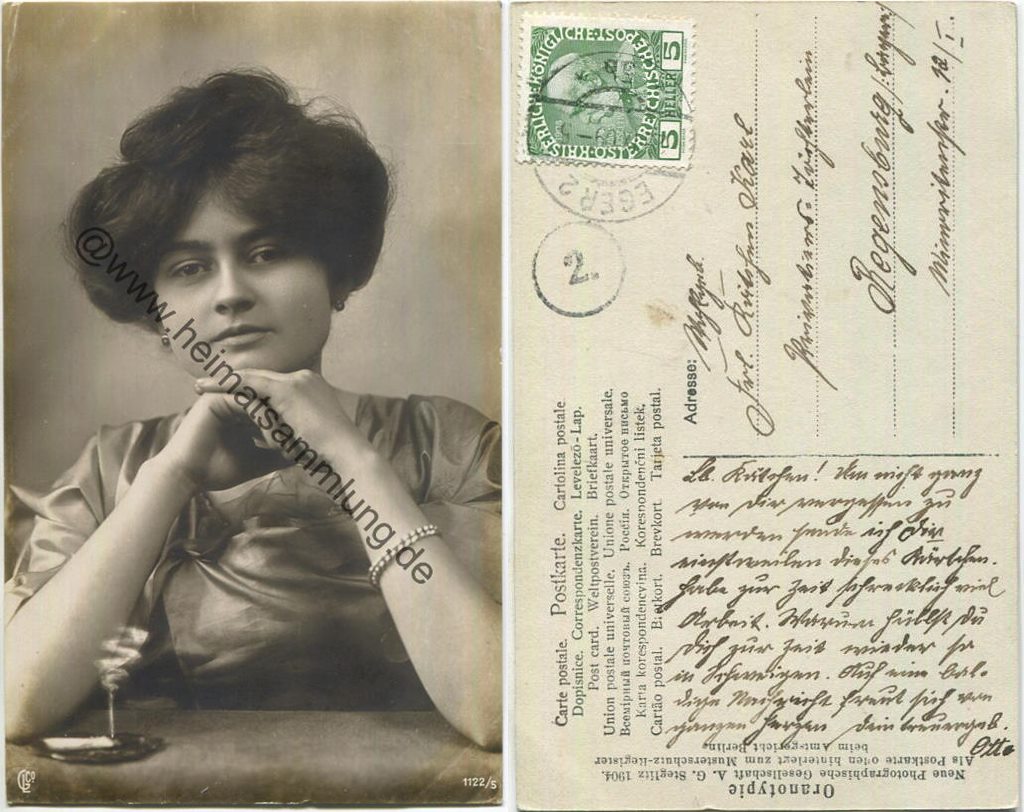 @www.heimatsammlung.de
1122/5
KAISERLICHE KÖNIGLICHE
ÖSTERREICHISCHE POST
5 HELLER 5
EGER 2
2.
Adresse:
Frl. Kätchen Karl
Regensburg
Carte postale. Postkarte. Cartolina postale
Dopisnice. Correspondenzkarte. Levelező-Lap.
Post card. Weltpostverein. Briefkaart.
Union postale universelle. Unione postale universale.
Всемірный почтовый союзъ. Россія. Открытое письмо
Karta korespondencyjna. Korespondenční lístek.
Cartão postal. Brefkort. Brevkort. Tarjeta postal.
Lb. Kätchen! Um nicht ganz
von Dir vergessen zu
werden sende ich Dir
dieses Kärtchen.
Habe zur Zeit schrecklich viel
Arbeit. Warum hüllst Du
Dich zur Zeit wieder so
in Schweigen. Auf eine bal-
dige Nachricht freut sich von
ganzem Herzen Dein
Otto
Oranotypie
Neue Photographische Gesellschaft A. G. Steglitz 1904.
Als Postkarte offen hinterlegt zum Musterschutz-Register
beim Amtsgericht Berlin.